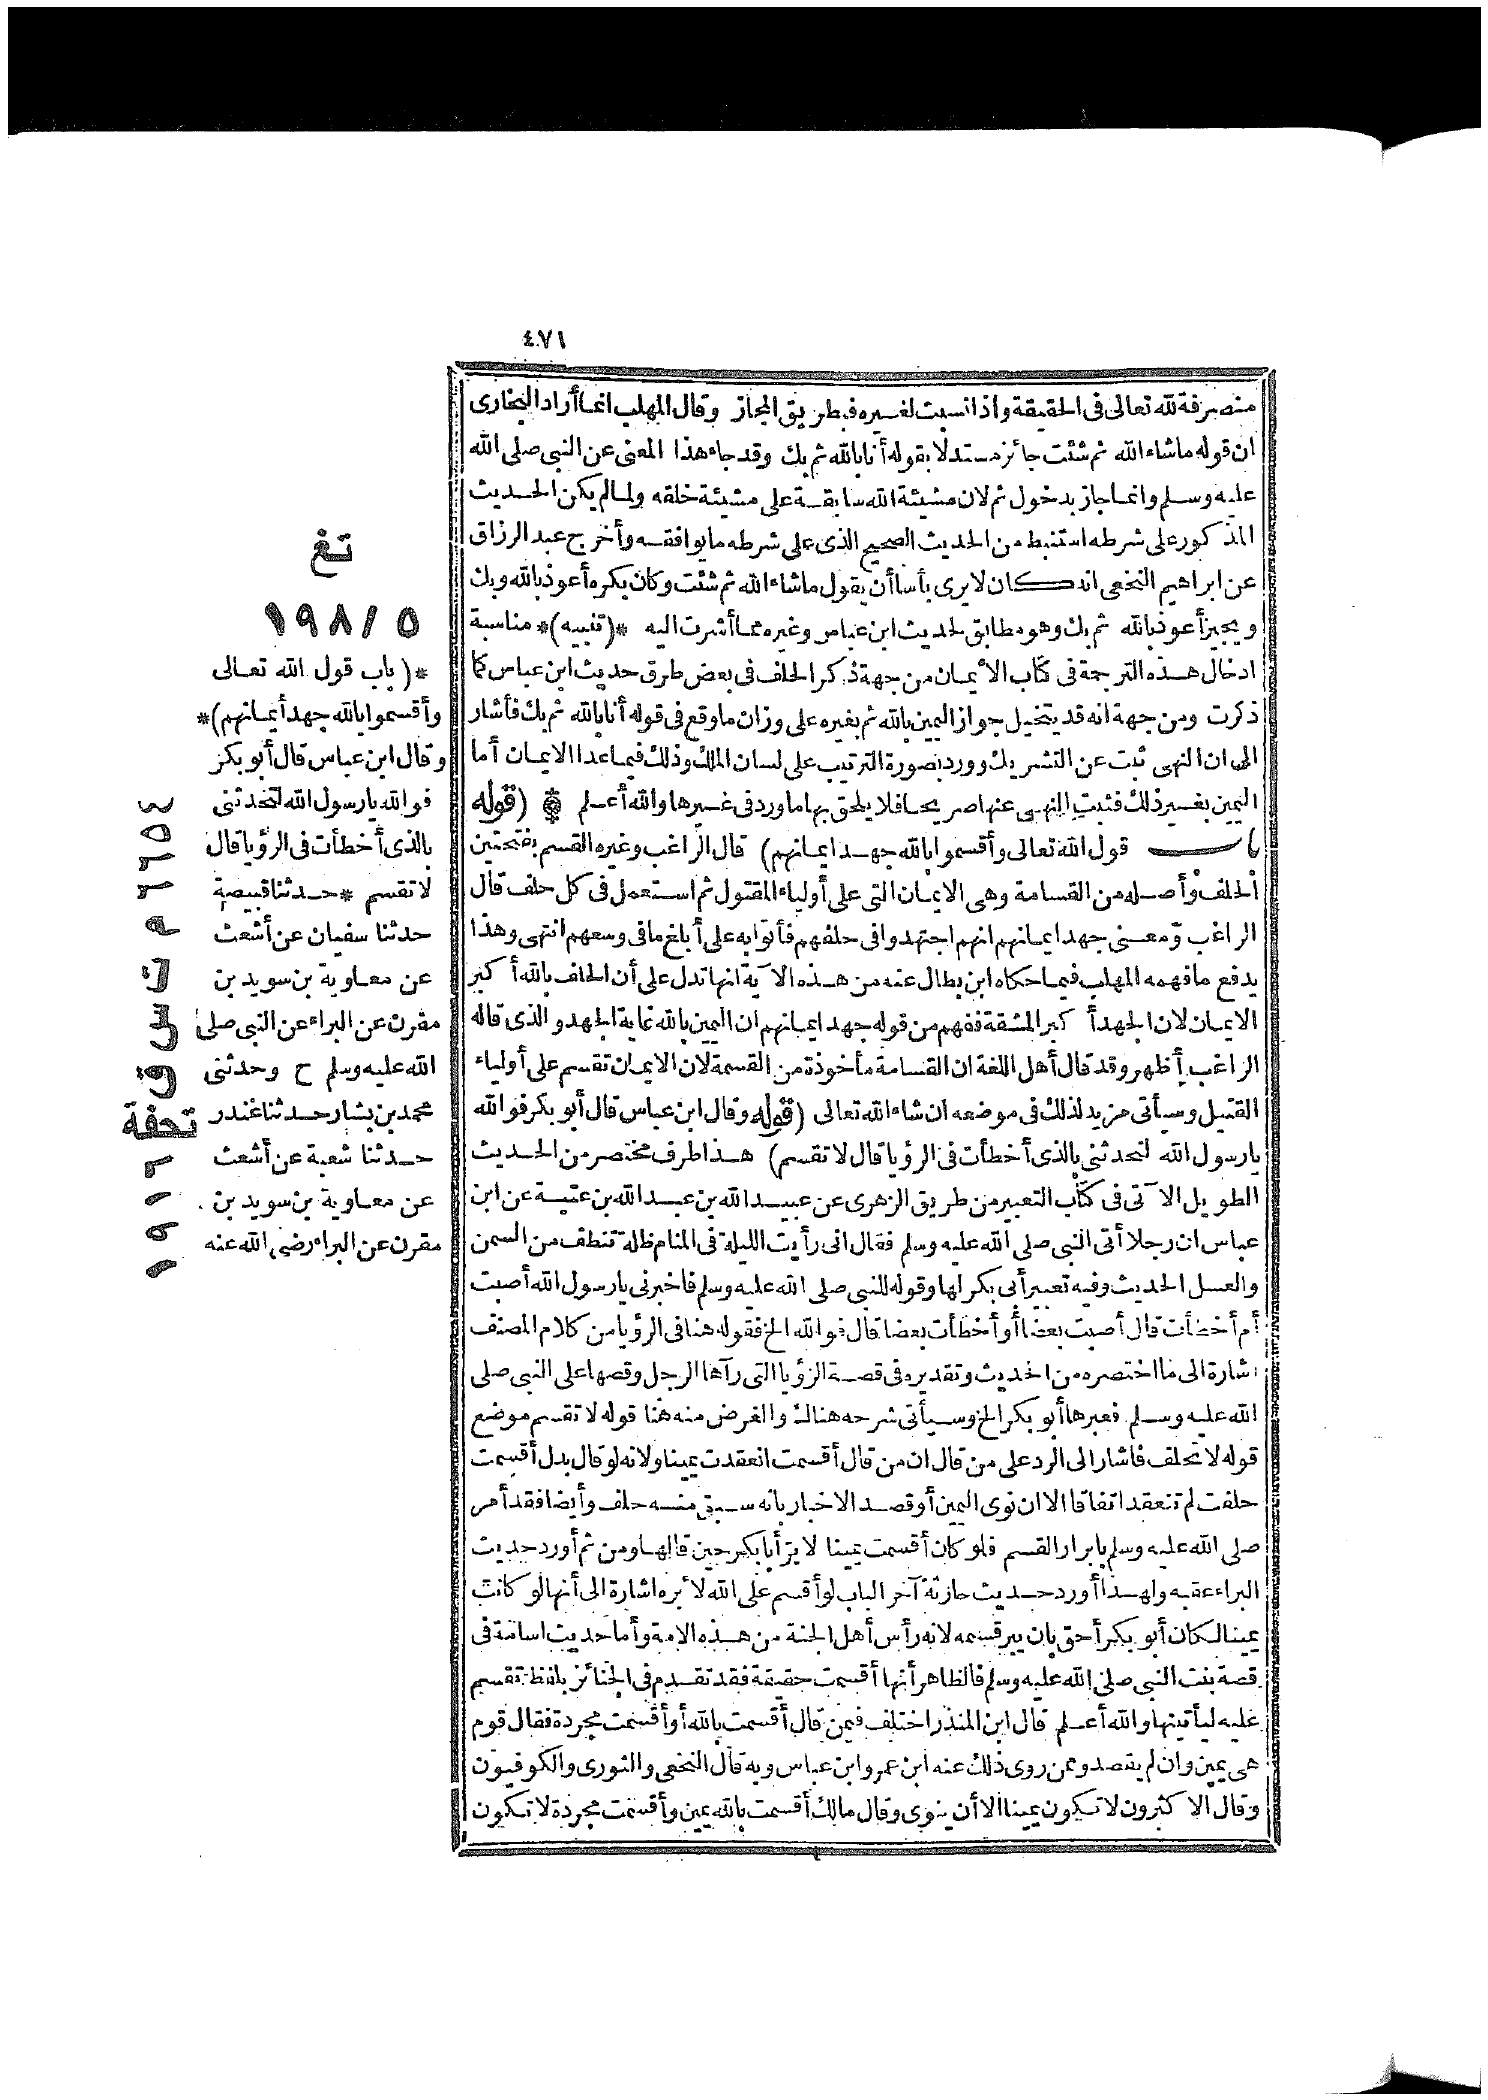 ٤٧١
منصرفة لله تعالى فى الحقيقة واذا نسبت لغيره فبطريق المجاز وقال المهلب انما أراد البخارى
ان قوله ما شاء الله ثم شئت جائز مستدلا بقوله أنا بالله ثم بك وقد جاء هذا المعنى عن النبى صلى الله
عليه وسلم وانما جاز بدخول ثم لان مشيئة الله سابقة على مشيئة خلقه ولما لم يكن الحديث
المذكور على شرطه استنبط من الحديث الصحيح الذى على شرطه ما يوافقه وأخرج عبد الرزاق
عن ابراهيم النخعى انه كان لا يرى بأسا أن يقول ما شاء الله ثم شئت وكان يكره أعوذ بالله وبك
ويجيز أعوذ بالله ثم بك وهو مطابق لحديث ابن عباس وغيره مما أشرت اليه *(تنبيه)* مناسبة
ادخال هذه الترجمة فى كتاب الأيمان من جهة ذكر الحلف فى بعض طرق حديث ابن عباس كما
ذكرت ومن جهة انه قد يتخيل جواز اليمين بالله ثم بغيره على وزان ما وقع فى قوله أنا بالله ثم بك فأشار
الى ان النهى ثبت عن التشريك وورد بصورة الترتيب على لسان الملك وذلك فيما عدا الايمان أما
اليمين بغير ذلك فثبت النهى عنها صريحا فلا يلحق بها ما ورد فى غيرها والله أعلم * (قوله
باب قول الله تعالى وأقسموا بالله جهد ايمانهم) قال الراغب وغيره القسم بفتحتين
الحلف وأصله من القسامة وهى الايمان التى على أولياء المقتول ثم استعمل فى كل حلف قال
الراغب ومعنى جهد ايمانهم انهم اجتهدوا فى حلفهم فأتوا به على أبلغ ما فى وسعهم انتهى وهذا
يدفع ما فهمه المهلب فيما حكاه ابن بطال عنه من هذه الآية انها تدل على أن الحلف بالله أكبر
الايمان لان الجهد أكبر المشقة ففهم من قوله جهد ايمانهم ان اليمين بالله غاية الجهد والذى قاله
الراغب أظهر وقد قال أهل اللغة ان القسامة مأخوذة من القسمة لان الايمان تقسم على أولياء
القتيل وسيأتى مزيد لذلك فى موضعه ان شاء الله تعالى (قوله وقال ابن عباس قال أبو بكر فو الله
يا رسول الله لتحدثنى بالذى أخطأت فى الرؤيا قال لا تقسم) هذا طرف مختصر من الحديث
الطويل الآتى فى كتاب التعبير من طريق الزهرى عن عبيد الله بن عبد الله بن عتبة عن ابن
عباس ان رجلا أتى النبى صلى الله عليه وسلم فقال انى رأيت الليلة فى المنام ظلة تنطف من السمن
والعسل الحديث وفيه تعبير أبى بكر لها وقوله للنبى صلى الله عليه وسلم فاخبرنى يا رسول الله أصبت
أم أخطأت قال أصبت بعضا أو أخطأت بعضا قال فو الله الخ فقوله هنا فى الرؤيا من كلام المصنف
اشارة الى ما اختصره من الحديث وتقديره فى قصة الرؤيا التى رآها الرجل وقصها على النبى صلى
الله عليه وسلم فعبرها أبو بكر الخ وسيأتى شرحه هناك والغرض منه هنا قوله لا تقسم موضع
قوله لا تحلف فاشار الى الرد على من قال ان من قال أقسمت انعقدت يمينا ولانه لو قال بدل أقسمت
حلفت لم تنعقد اتفاقا الا ان نوى اليمين أو قصد الاخبار بانه سبق منه حلف وأيضا فقد أمر
صلى الله عليه وسلم بابرار القسم فلو كان أقسمت يمينا لابر أبا بكر حين قالها ومن ثم أورد حديث
البراء عقبه ولهذا أورد حديث حارثة آخر الباب لو أقسم على الله لأبره اشارة الى أنها لو كانت
يمينا لكان أبو بكر أحق بان يبر قسمه لانه رأس أهل الجنة من هذه الامة وأما حديث اسامة فى
قصة بنت النبى صلى الله عليه وسلم فالظاهر أنها أقسمت حقيقة فقد تقدم فى الجنائز بلفظ تقسم
عليه ليأتينها والله أعلم قال ابن المنذر اختلف فيمن قال أقسمت بالله أو أقسمت مجردة فقال قوم
هى يمين وان لم يقصد وممن روى ذلك عنه ابن عمر وابن عباس وبه قال النخعى والثورى والكوفيون
وقال الاكثرون لا تكون يمينا الا أن ينوى وقال مالك أقسمت بالله يمين وأقسمت مجردة لا تكون
تغ
١٩٨/٥
*(باب قول الله تعالى
وأقسموا بالله جهد أيمانهم)*
وقال ابن عباس قال أبو بكر
فو الله يا رسول الله لتحدثنى
بالذى أخطأت فى الرؤيا قال
لا تقسم * حدثنا قبيصة
حدثنا سفيان عن أشعث
عن معاوية بن سويد بن
مقرن عن البراء عن النبى صلى
الله عليه وسلم ح وحدثنى
محمد بن بشار حدثنا غندر
حدثنا شعبة عن أشعث
عن معاوية بن سويد بن
مقرن عن البراء رضى الله عنه
٦٦٥٤
م ت س ق
تحفة
١٩١٦